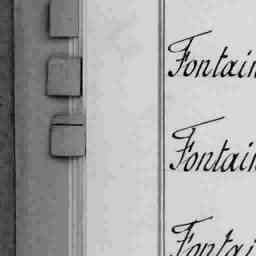 Fontain
Fontain
Fontai